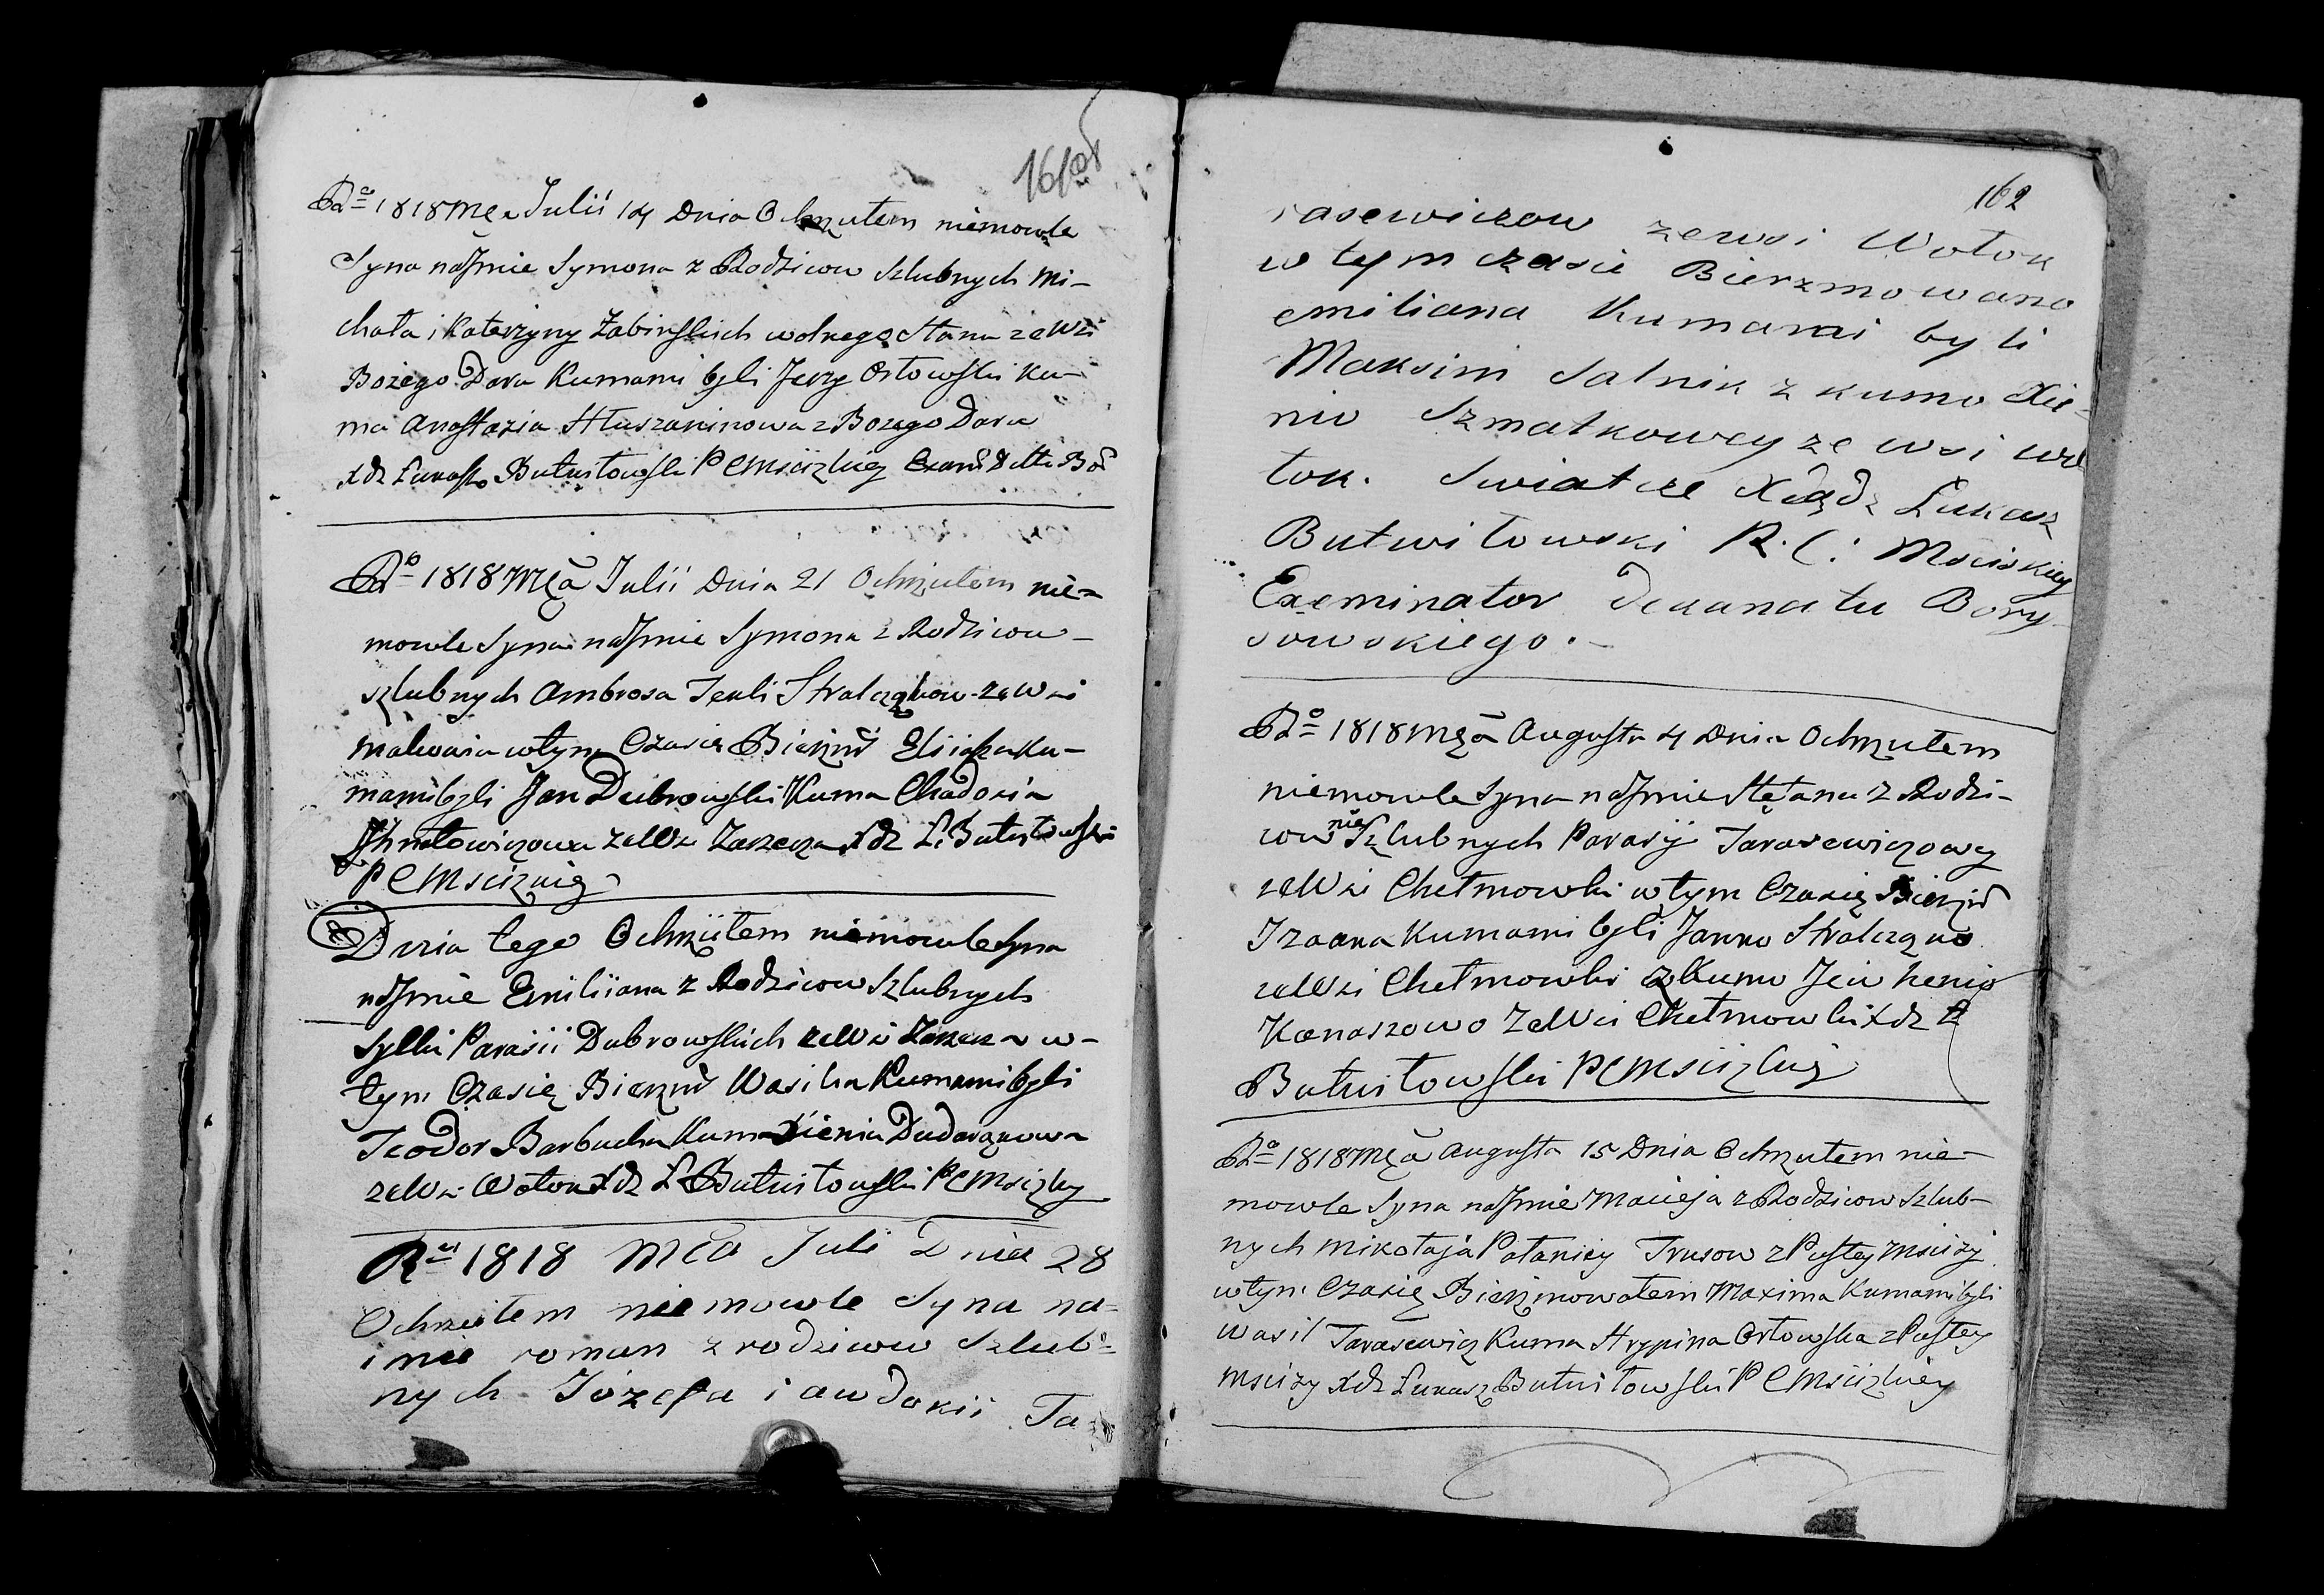 161об
Rº 1818 Mca Julii 14 Dnia Ochrzciłem niemowle
Syna na Jmie Symona z Rodzicow Szlubnych Mi-
chała i Katerzyny Żabinskich wolnego Stanu ze Wsi
Bożego Daru Kumami byli Jerzy Orłowski ku-
ma Anastazia Hluszaninowa z Bożego Daru
Xdz Łukasz Butwiłowski P C Msciżkiey
Rº 1818 Mca Julii Dnia 21 Ochrzciłem nie-
mowle Syna na Jmie Symona z Rodzicow
szlubnych Ambrosa Tekli Stralcząkow ze Wsi
w tym Czasie Bierzm
mami byli Jan Dubrowski Kuma Chadosia
ze Wsi Zarzecza Xdz Ł. Butwiłowski
P C Msciżkiey
Dnia tego Ochrzciłem niemowle Syna
na Jmie Emiliiana z Rodzicow Szlubnych
Sylki Parasii Dubrowskich ze Wsi Zarzecza w-
tym Czasie Bierzm Wasila Kumami byli
Teodor Barbucha Kuma Xienia Dudarąkowa
ze Wsi Wołok Xdz Ł Butwiłowski P C Msciżkiey
Rº 1818 Mca Juli Dnia 28
Ochrzciłem niemowle Syna na-
imie roman z rodzicow Szlub-
nych Józefa i awdokii Ta
162
rasewiczow ze wsi Wołok
w tym czasie Bierzmowano
emiliana Kumami byli
Maksim Salnik z kumo Xie-
nio Szmatkowey ze wsi wo
łok. Swiatcze Xiądz Łukasz
Butwiłowski P. C: Msciskiey
Exeminator Dekanatu Bory-
sowskiego.
Rº 1818 Mca Augusta 4 Dnia Ochrzciłem
niemowle Syna na Jmie Stefana z Rodzi-
cow nie Szlubnych Parasij Tarasewiczowey
ze Wsi Chełmowki w tym Czasie Bierzm
Izaaka Kumami byli Janko Stralcząko
ze Wsi Chełmowki z Kumo Jewhenio
Kanaszowo ze Wsi Chełmowki Xdz Ł
Butwiłowski P C Msciżkiey
Rº 1818 Mca Augusta 15 Dnia Ochrzciłem nie-
mowle Syna na Jmie Macieja z Rodzicow Szlub-
nych Mikołaja Połaniey Trusow z Pustey Mscizy
w tym Czasie Bierzmowałem Maxima Kumami byli
Wasil Tarasewicz Kuma Hrypina Orłowska z Pustey
Mscizy Xdz Łukasz Butwiłowski P C Msciżkiey